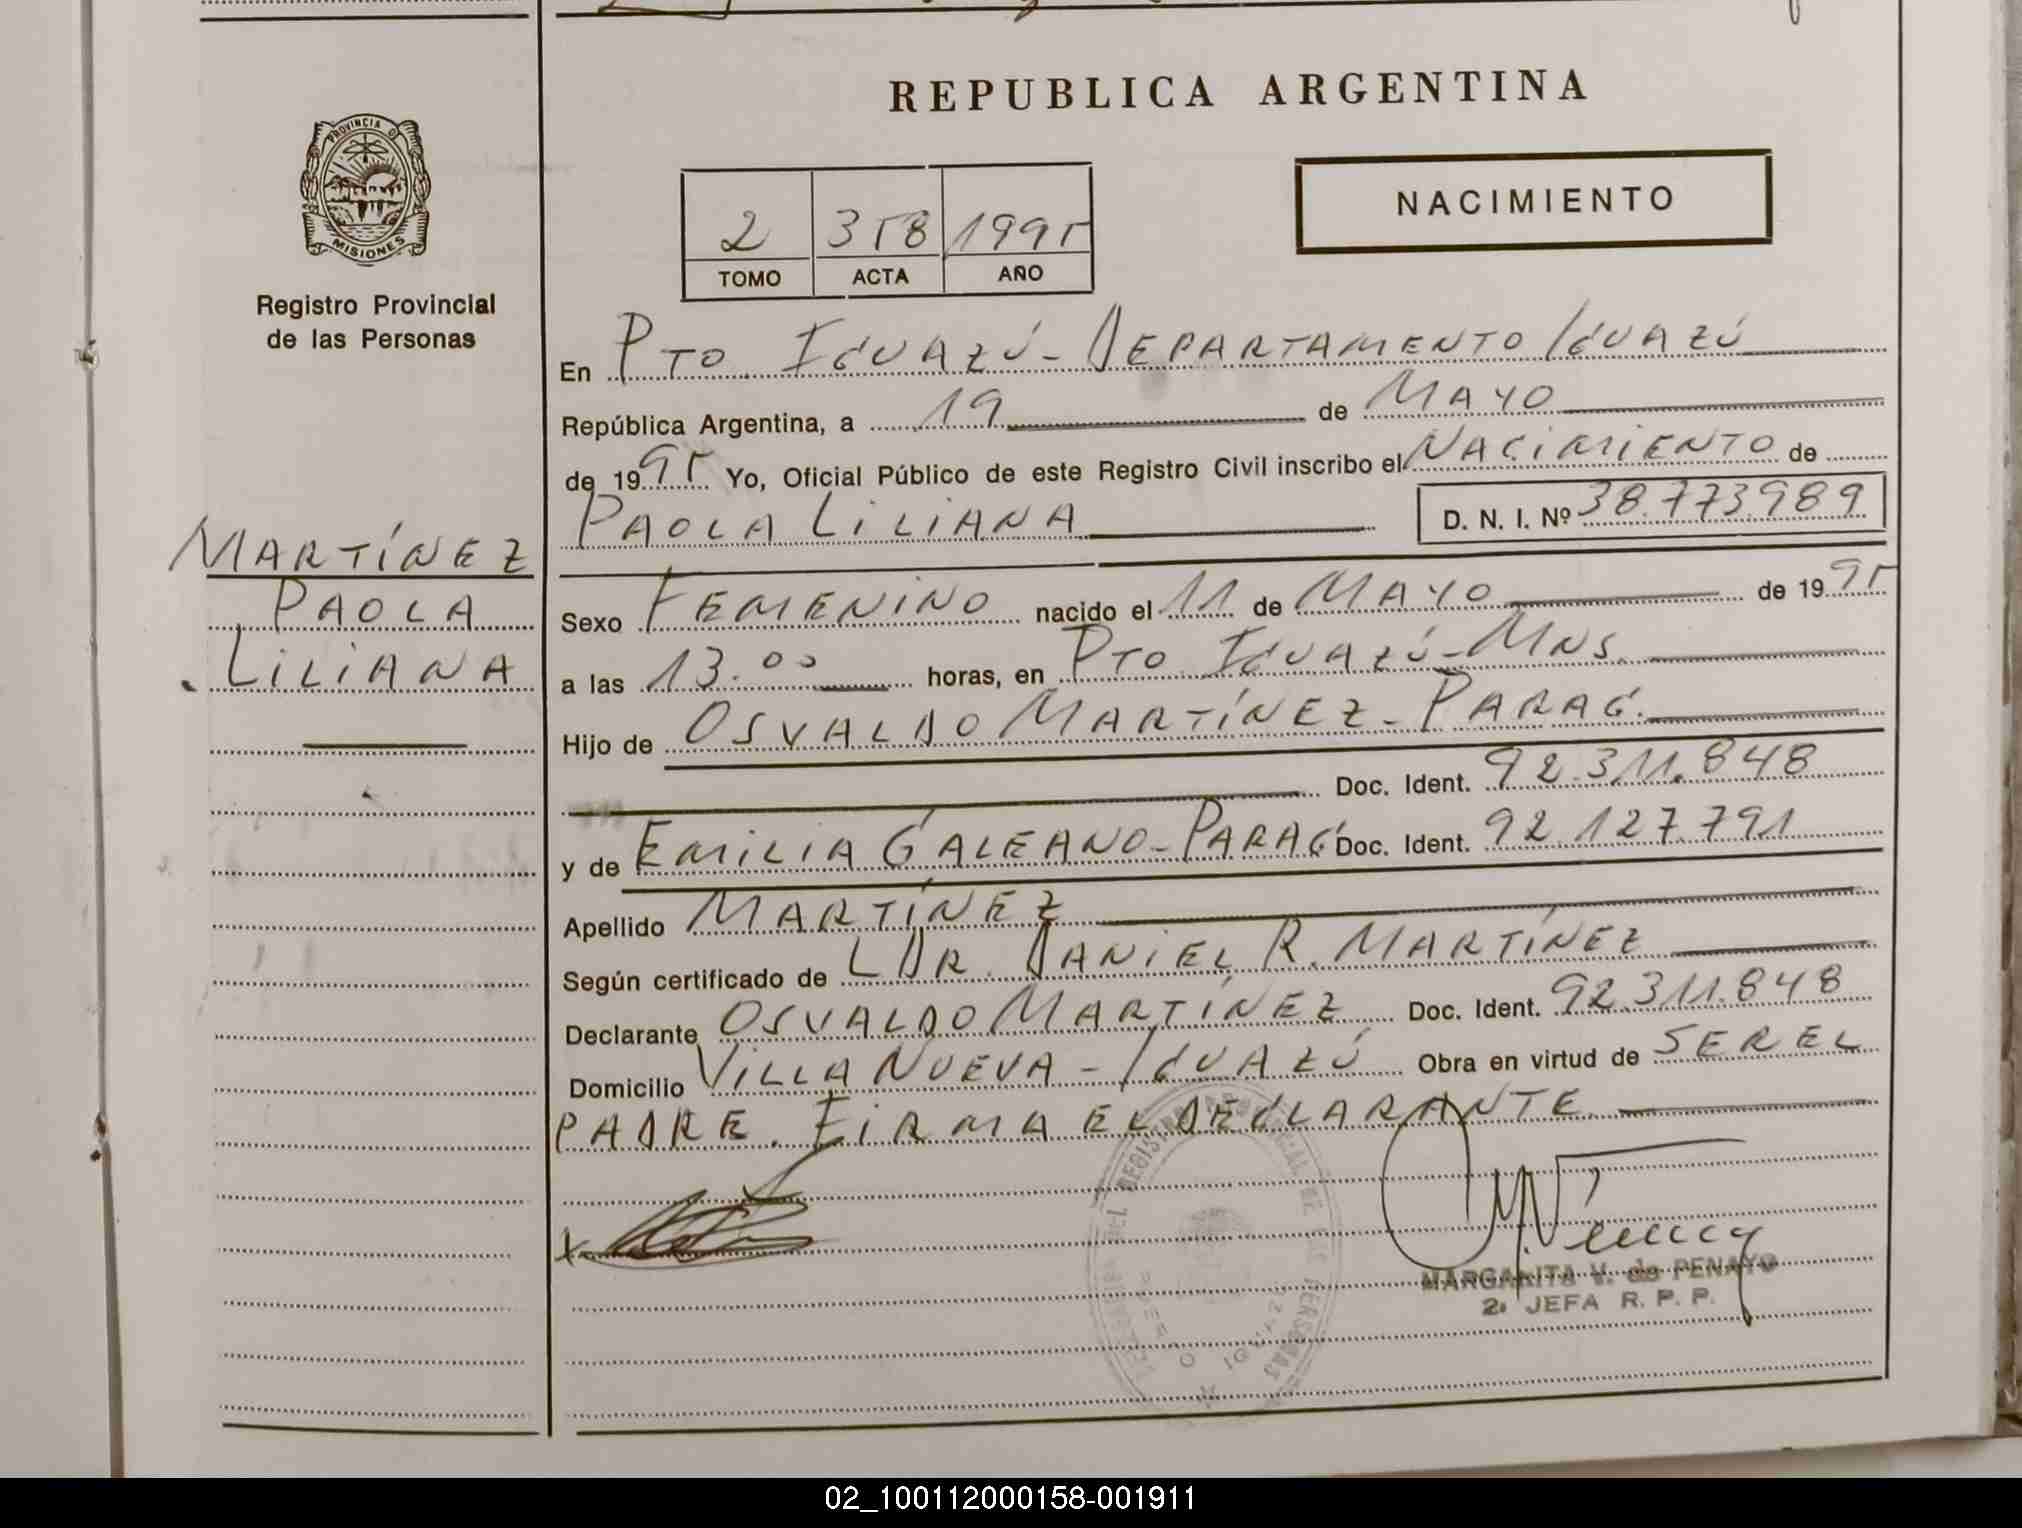 REPUBLICA ARGENTINA
PROVINCIA DE
MISIONES
Registro Provincial
de las Personas
NACIMIENTO
2 358 1995
TOMO ACTA AÑO
En Pto. Iguazú - Departamento Iguazú
República Argentina, a 19 de Mayo
de 1995 Yo, Oficial Público de este Registro Civil inscribo el Nacimiento de
Paola Liliana D. N. I. Nº 38.773.989
Martínez
Paola
Liliana
Sexo Femenino nacido el 11 de Mayo de 1995
a las 13.00 horas, en Pto. Iguazú - Mns.
Hijo de Osvaldo Martínez - Parag.
Doc. Ident. 92.311.848
y de Emilia Galeano - Parag Doc. Ident. 92.127.791
Apellido Martínez
Según certificado de L Dr. Daniel R. Martínez
Declarante Osvaldo Martínez Doc. Ident. 92.311.848
Domicilio Villa Nueva - Iguazú Obra en virtud de ser el
padre. Firma el declarante.
MARGARITA V. de PENAYO
2a JEFA R. P. P.
02_100112000158-001911